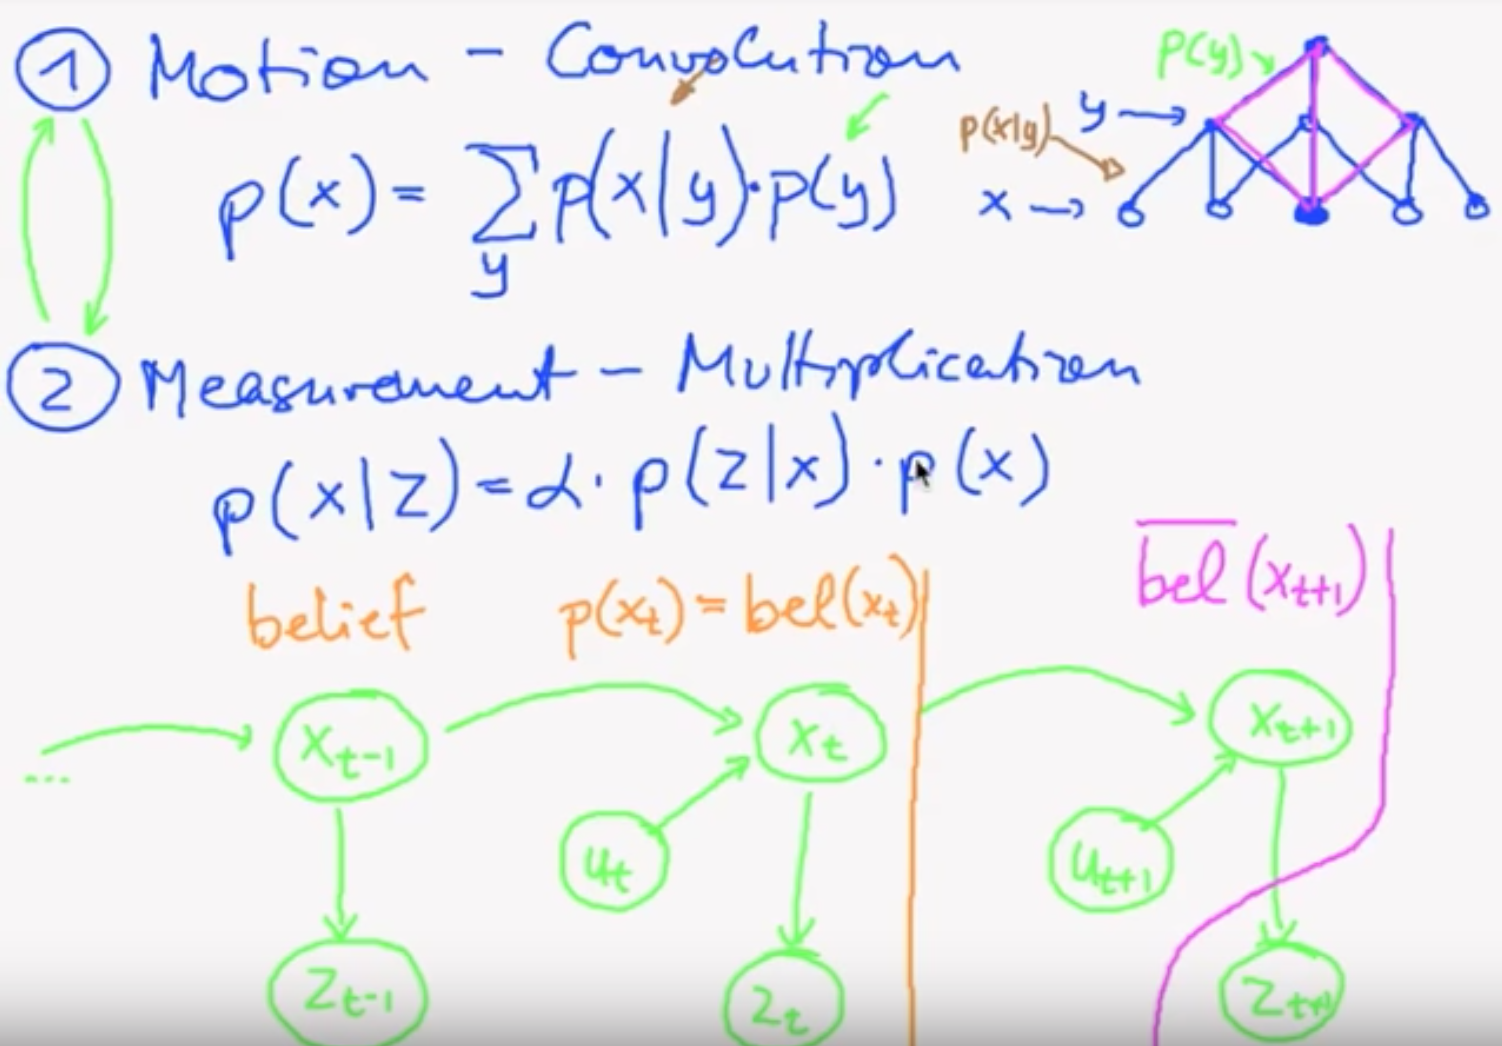 ① Motion - Convolution
p(x) = Σ_y p(x|y)·p(y)
p(y)
p(x|y)
y →
x →
② Measurement - Multiplication
p(x|z) = α · p(z|x) · p(x)
belief p(x_t) = bel(x_t) \overline{bel}(x_{t+1})
... x_{t-1} x_t x_{t+1}
u_t u_{t+1}
z_{t-1} z_t z_{t+1}